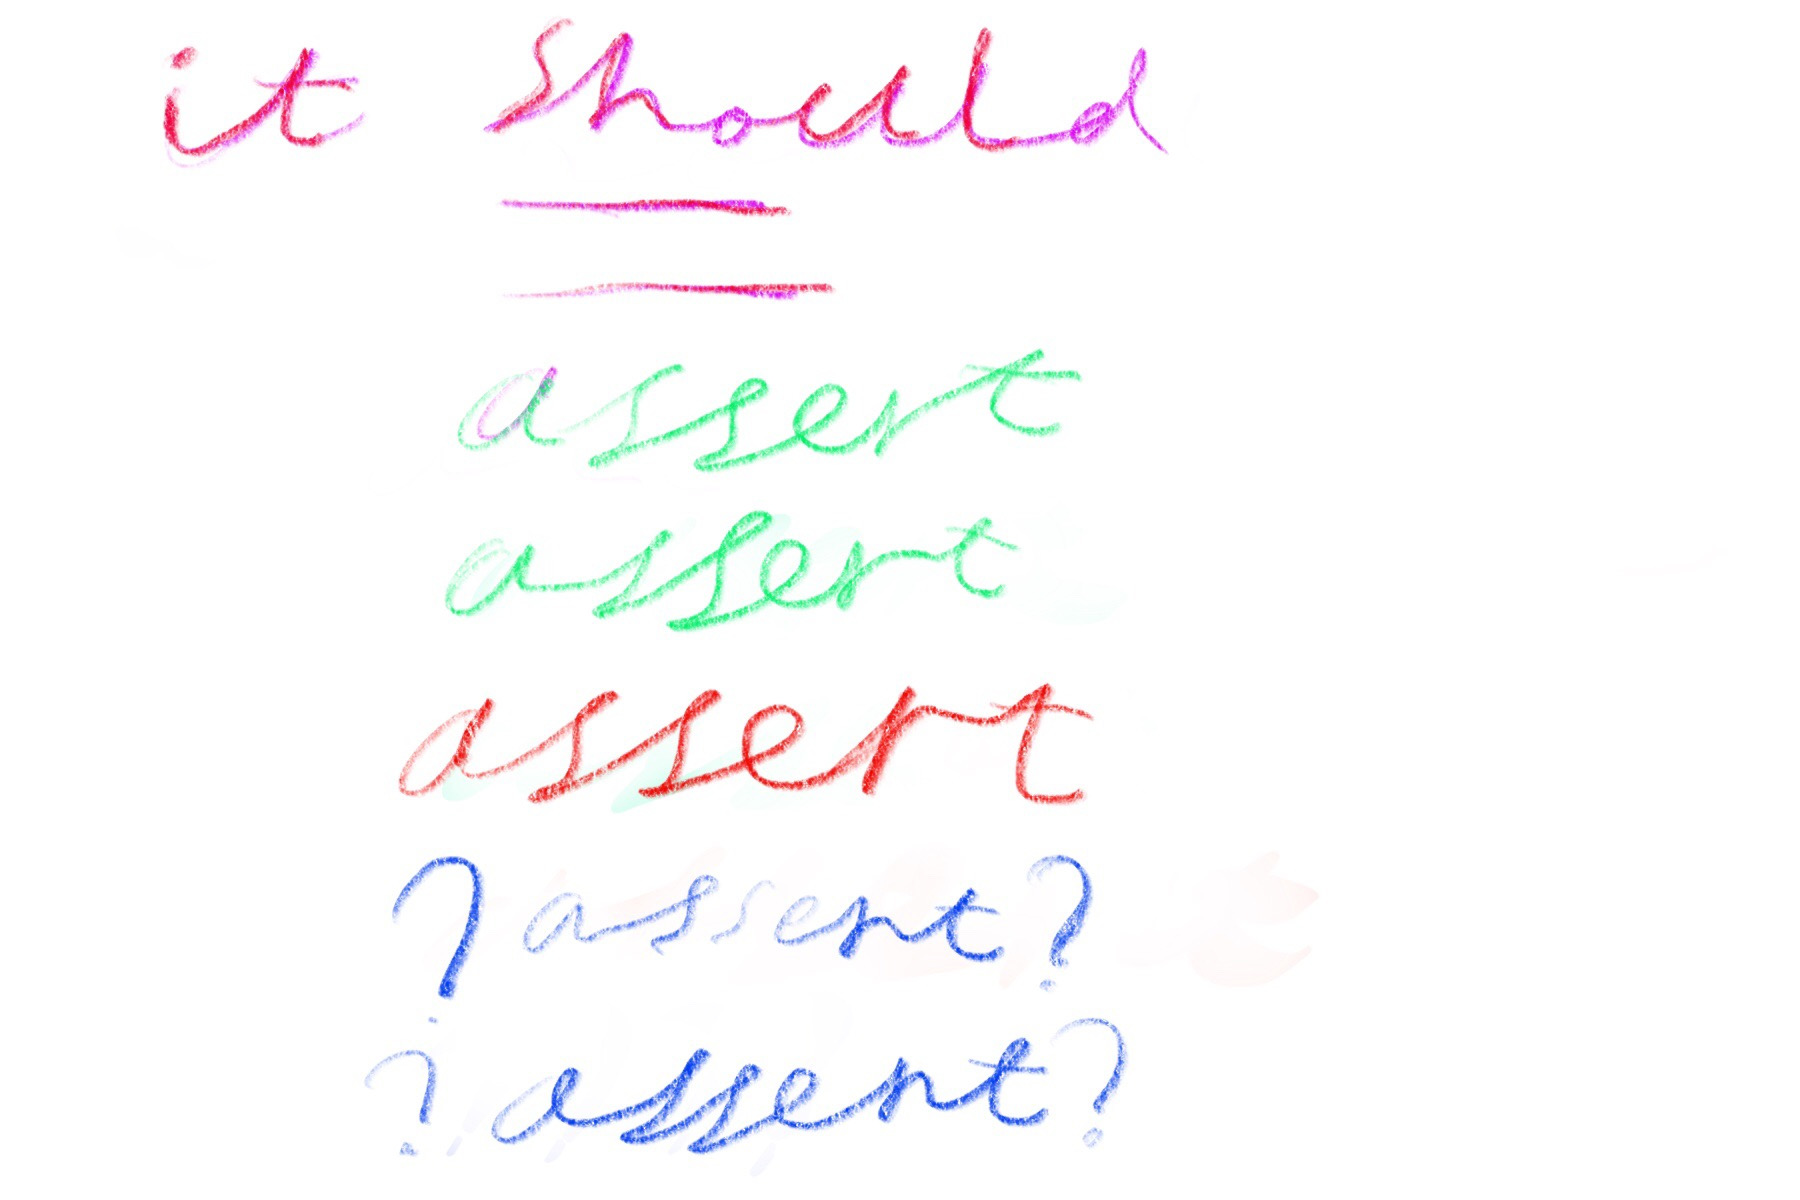 it should
assert
assert
assert
? assert?
? assert?